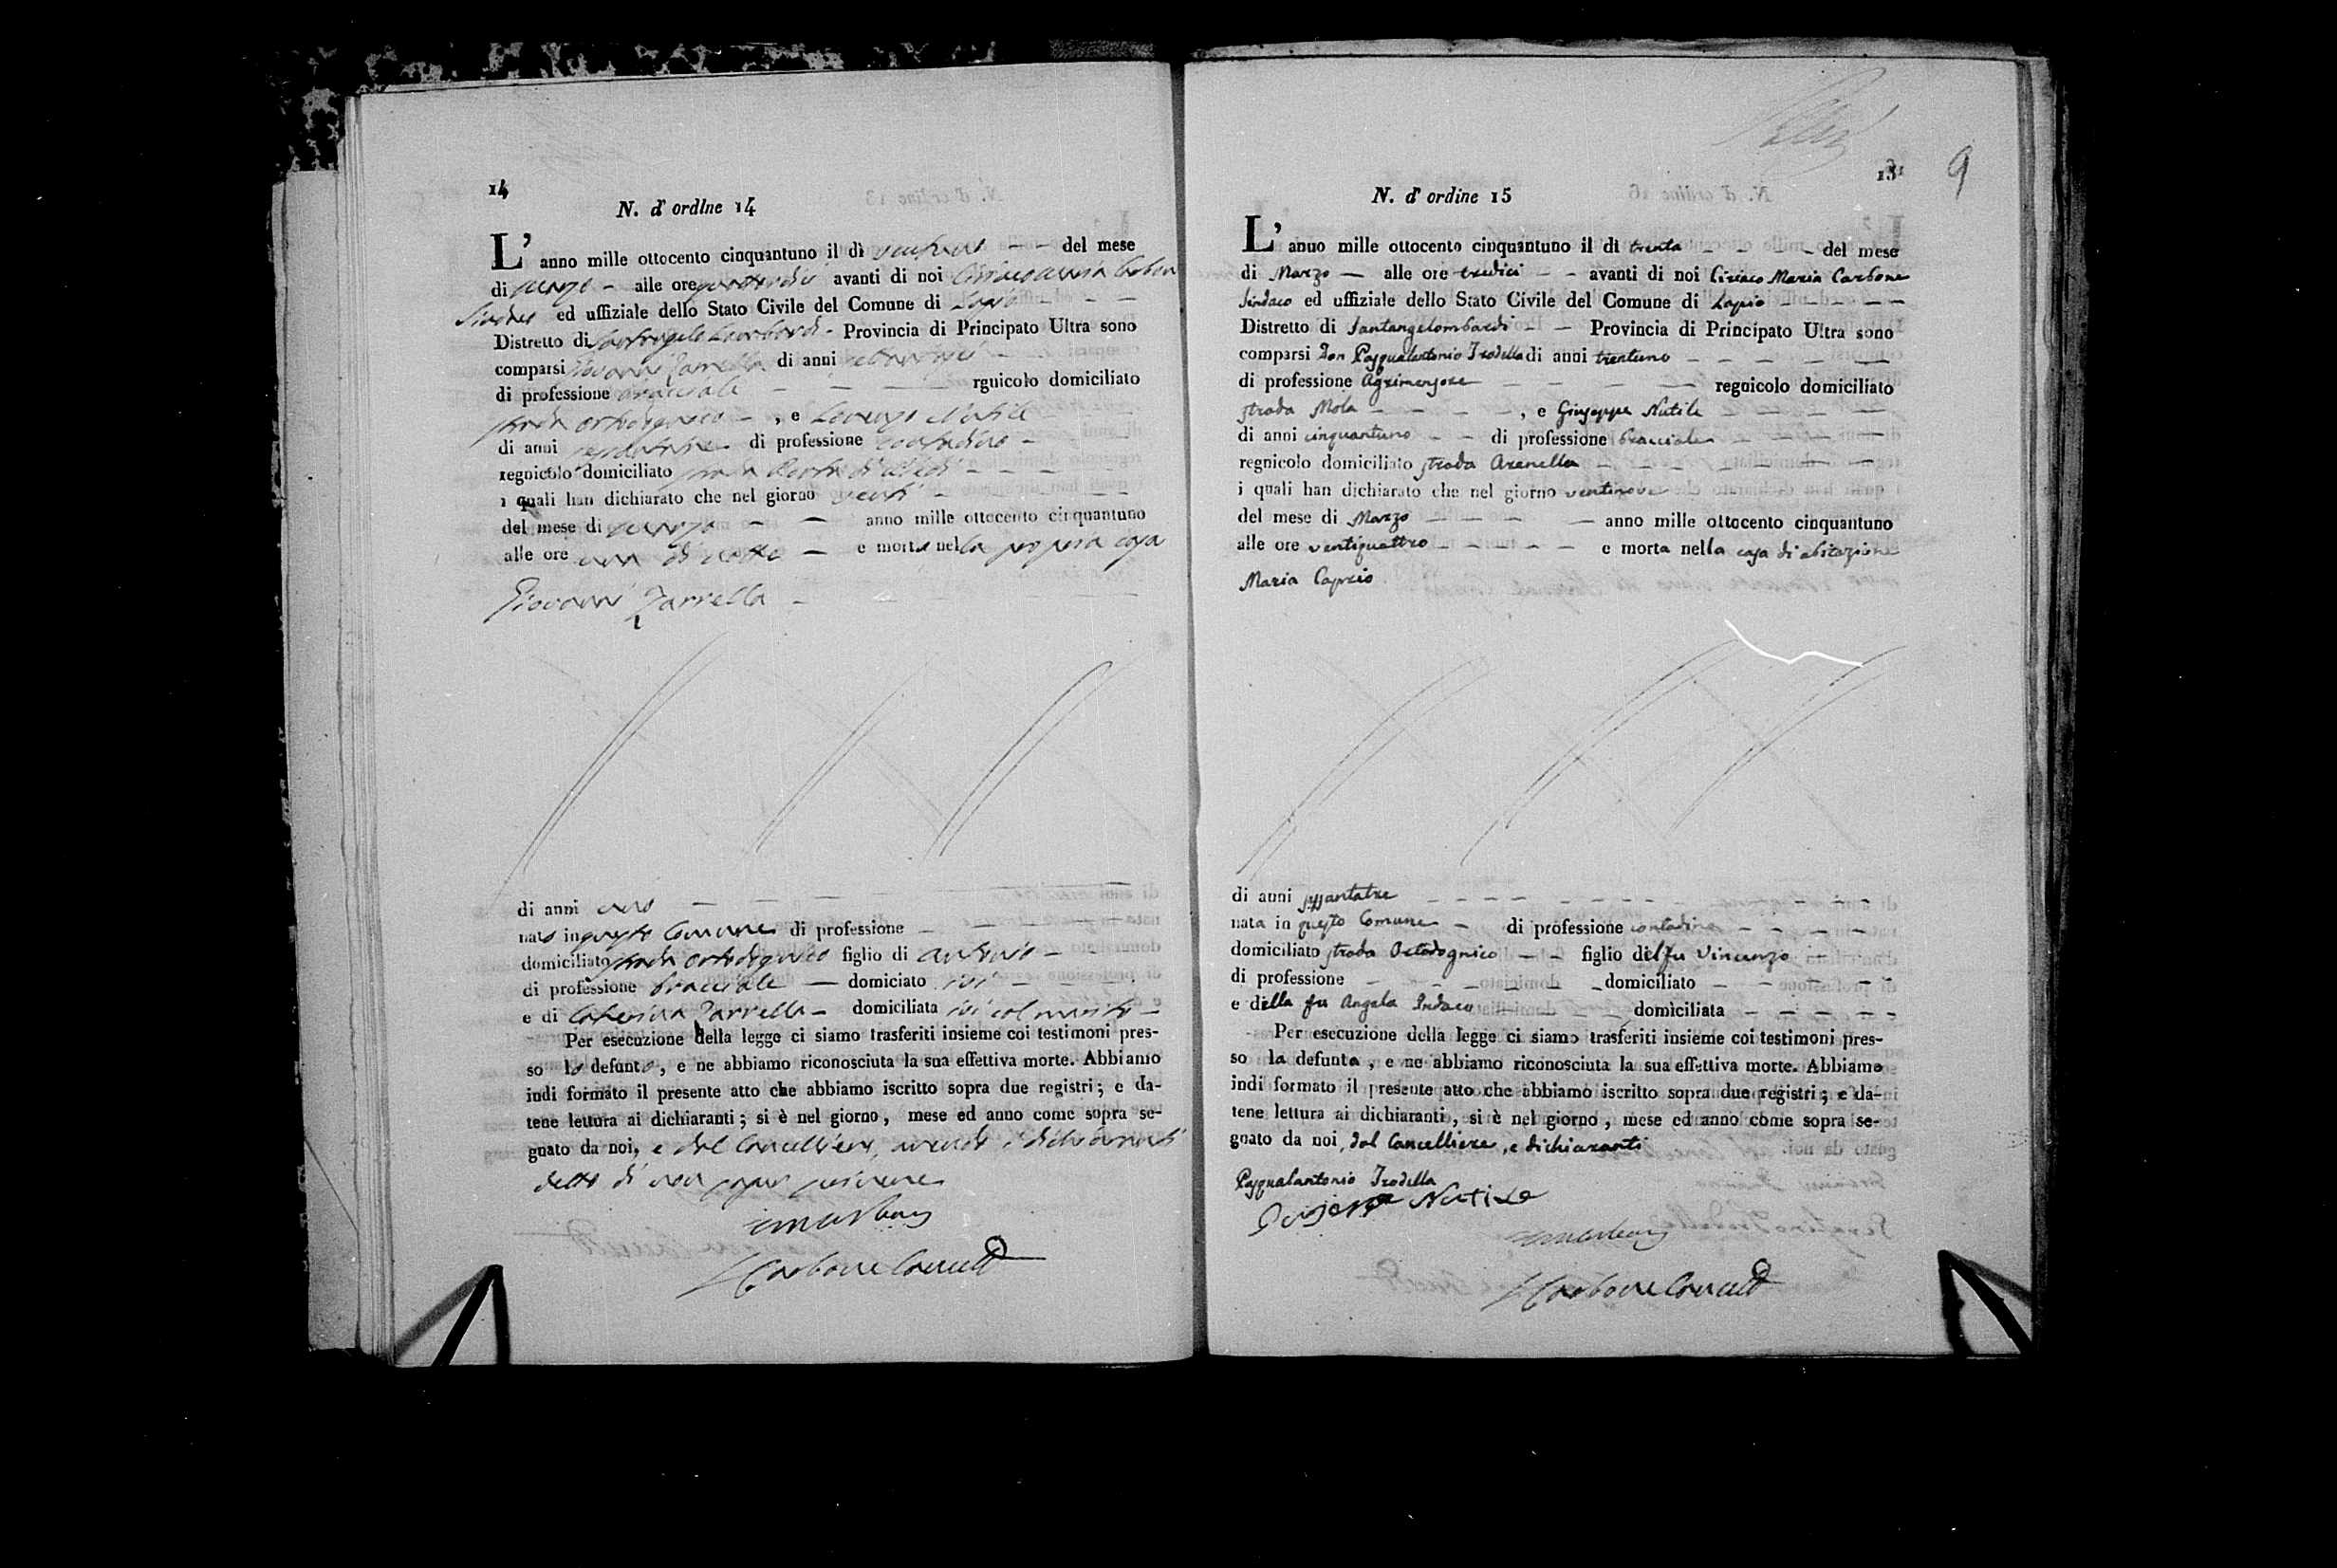 14
N. d' ordine 14
L' anno mille ottocento cinquantuno il dì ventuno del mese
di Marzo alle ore quattordici avanti di noi Ciriaco Maria Carbone
Sindaco ed uffiziale dello Stato Civile del Comune di Lapio
Distretto di Santangelo Lombardi Provincia di Principato Ultra sono
comparsi Giovanni Zarrella di anni
di professione bracciale rgnicolo domiciliato
strada Ortodognico , e Lorenzo Nutile
di anni di professione contadino
regnicolo domiciliato strada
i quali han dichiarato che nel giorno venti
del mese di Marzo anno mille ottocento cinquantuno
alle ore una di notte e morto nella propria casa
Giovanni Zarrella
di anni uno
nato in questo Comune di professione
domiciliato strada Ortodognico figlio di Antonio
di professione bracciale domiciato ivi
e di Caterina Zarrella domiciliata ivi col marito
Per esecuzione della legge ci siamo trasferiti insieme coi testimoni pres-
so lo defunto, e ne abbiamo riconosciuta la sua effettiva morte. Abbiamo
indi formato il presente atto che abbiamo iscritto sopra due registri; e da-
tene lettura ai dichiaranti; si è nel giorno, mese ed anno come sopra se-
gnato da noi, e dal Cancelliere, avendo i dichiaranti
detto di non saper scrivere
Carbone Cancell
9
N. d' ordine 15
L' anuo mille ottocento cinquantuno il di trenta del mese
di Marzo alle ore tredici avanti di noi Ciriaco Maria Carbone
Sindaco ed uffiziale dello Stato Civile del Comune di Lapio
Distretto di Santangelombardi Provincia di Principato Ultra sono
comparsi Don Pasqualantonio Trodella di anni trentuno
di professione Agrimensore regnicolo domiciliato
strada Mola , e Giuseppe Nutile
di anni cinquantuno di professione bracciale
regnicolo domiciliato strada Arenella
i quali han dichiarato che nel giorno ventinove
del mese di Marzo anno mille ottocento cinquantuno
alle ore ventiquattro e morta nella casa di abitazione
Maria Caprio
di anni sessantatre
nata in questo Comune di professione contadina
domiciliato strada Ortodognico figlio del fu Vincenzo
di professione domiciliato
e della fu Angela Indaco domiciliata
Per esecuzione della legge ci siamo trasferiti insieme coi testimoni pres-
so la defunta, e ne abbiamo riconosciuta la sua effettiva morte. Abbiamo
indi formato il presente atto che abbiamo iscritto sopra due registri; e da-
tene lettura ai dichiaranti, si è nel giorno, mese ed anno come sopra se-
gnato da noi, dal Cancelliere, e dichiaranti
Pasqualantonio Trodella
Giuseppe Nutile
Carbone Cancell